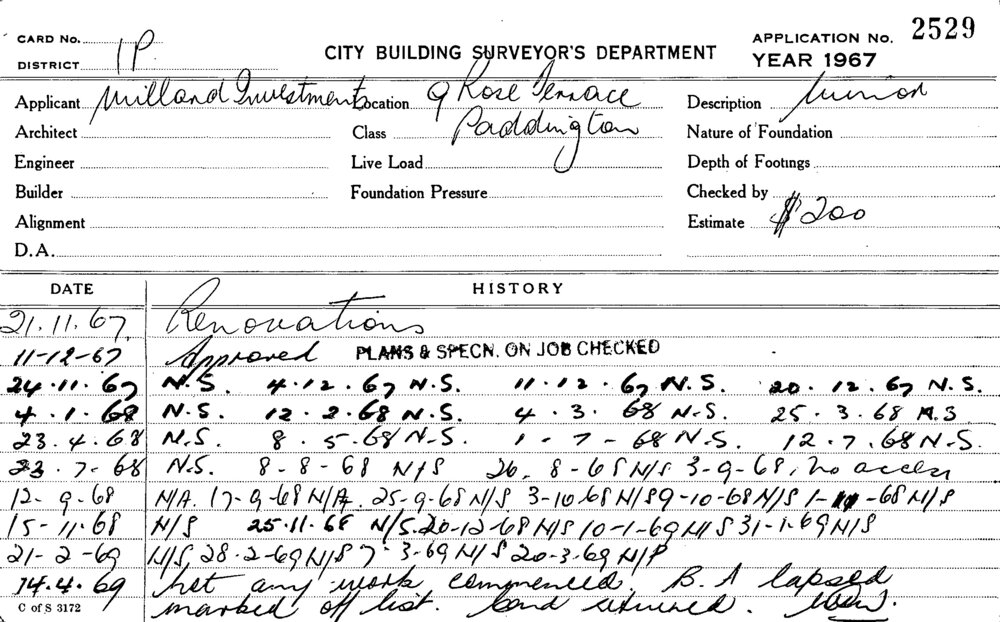 CARD No. 1P CITY BUILDING SURVEYOR'S DEPARTMENT APPLICATION No. 2529
DISTRICT YEAR 1967
Applicant Milland Investments Location 9 Rose Terrace Description Minor
Architect Class Paddington Nature of Foundation
Engineer Live Load Depth of Footings
Builder Foundation Pressure Checked by
Alignment Estimate $200
D.A.
DATE HISTORY
21.11.67 Renovations
11-12-67 Approved PLANS & SPECN. ON JOB CHECKED
24.11.67 N.S. 4.12.67 N.S. 11.12.67 N.S. 20.12.67 N.S.
4.1.68 N.S. 12.2.68 N.S. 4.3.68 N.S. 25.3.68 N.S
23.4.68 N.S. 8.5.68 N.S. 1-7-68 N.S. 12.7.68 N.S.
23.7-68 N.S. 8-8-68 N/S 26.8-68 N/S 3-9-68, no access
12-9-68 N/A. 17-9-68 N/A. 25-9-68 N/S 3-10-68 N/S 9-10-68 N/S 1-11-68 N/S
15-11.68 N/S 25.11.68 N/S. 20-12-68 N/S 10-1-69 N/S 31-1-69 N/S
21-2-69 N/S 28.2-69 N/S 7-3-69 N/S 20-3-69 N/P
14.4.69 Not any work commenced. B.A lapsed
C of S 3172 marked off list. Card returned.